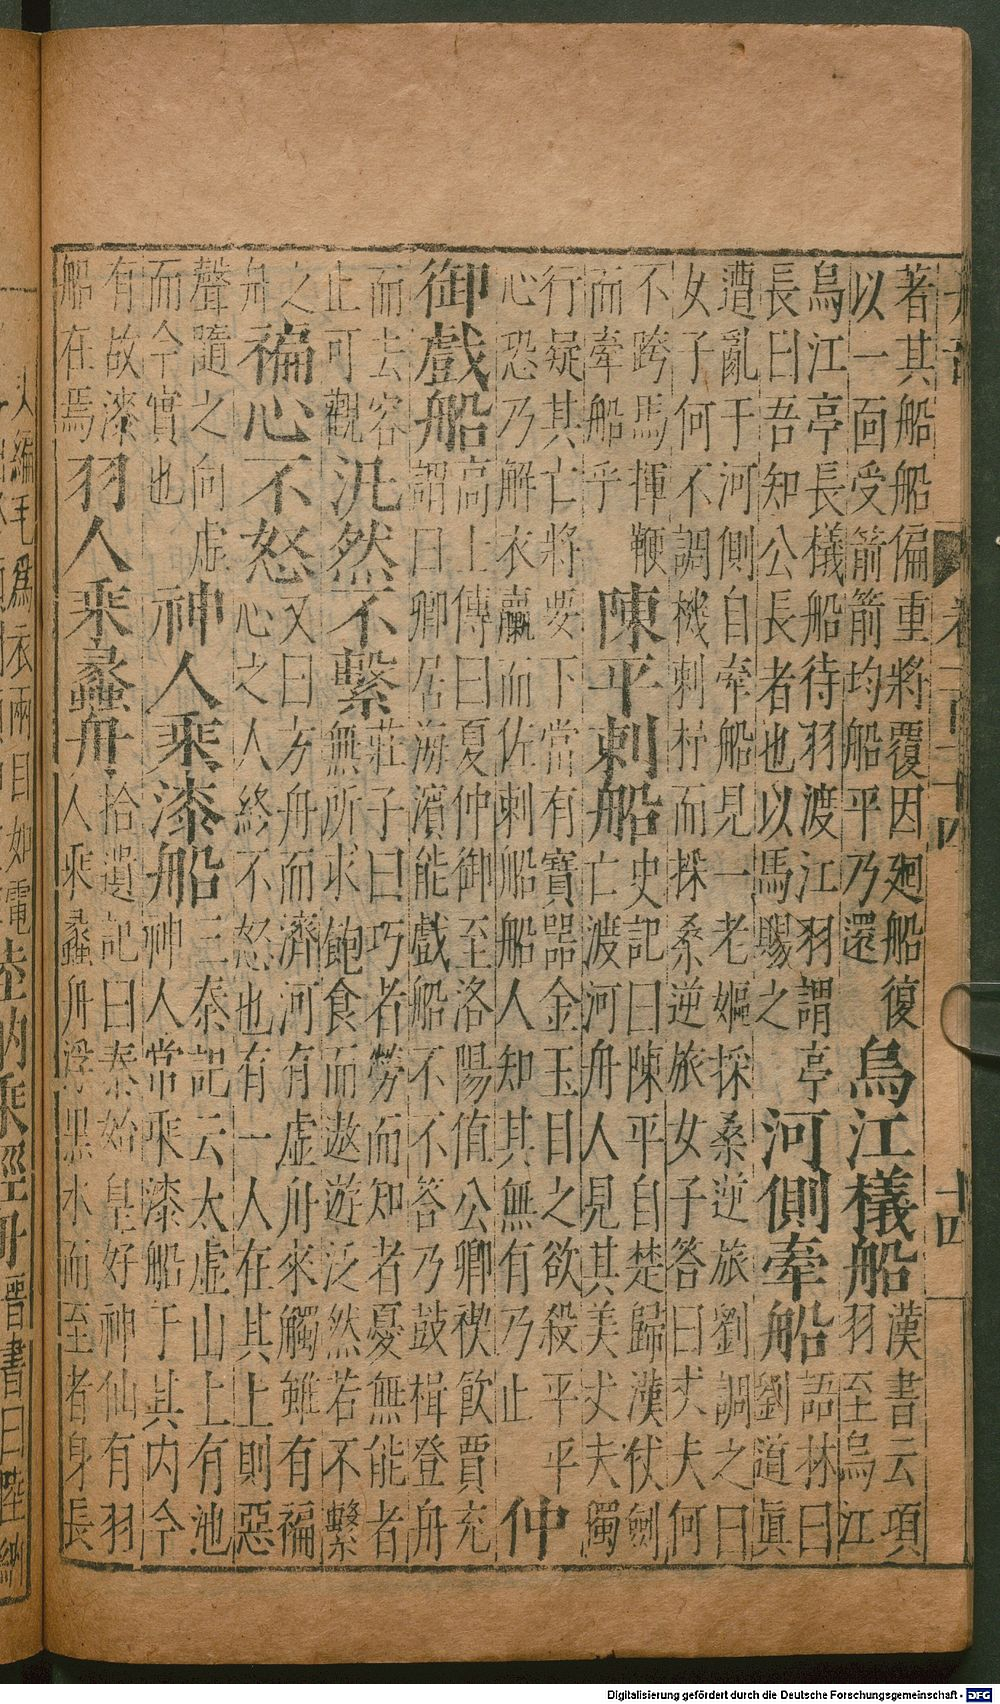 著其船船偏重將覆因廻船復
以一面受箭箭均船平乃還
烏江檥船
漢書云項
羽至烏江
烏江亭長檥船待羽渡江羽謂亭
長曰吾知公長者也以馬賜之
河側牽船
語林曰
劉道眞
遭亂于河側自牽船見一老嫗採桑逆旅劉調之曰
女子何不調機刺杼而採桑逆旅女子答曰丈夫何
不跨馬揮鞭
而牽船乎
陳平刺船
史記曰陳平自楚歸漢仗劍
亡渡河舟人見其美丈夫獨
行疑其亡將要下當有寶器金玉目之欲殺平平
心恐乃解衣臝而佐刺船船人知其無有乃止
仲
御戲船
高士傳曰夏仲御至洛陽值公卿禊飲賈充
謂曰卿居海濱能戲船不不答乃鼓楫登舟
而去容
止可觀
汎然不繫
莊子曰巧者勞而知者憂無能者
無所求飽食而遨遊泛然若不繫
之
舟
褊心不怒
又曰方舟而濟河有虛舟來觸雖有褊
心之人終不怒也有一人在其上則惡
聲隨之向虛
而今實也
神人乘漆船
三秦記云太虛山上有池
神人常乘漆船于其內今
有故漆
船在焉
羽人乘蠡舟
拾遺記曰秦始皇好神仙有羽
人乘蠡舟浮黑水而至者身長
十四
編毛爲衣兩目如電
陸納乘輕舟
晉書曰陸納
Digitalisierung gefördert durch die Deutsche Forschungsgemeinschaft - DFG